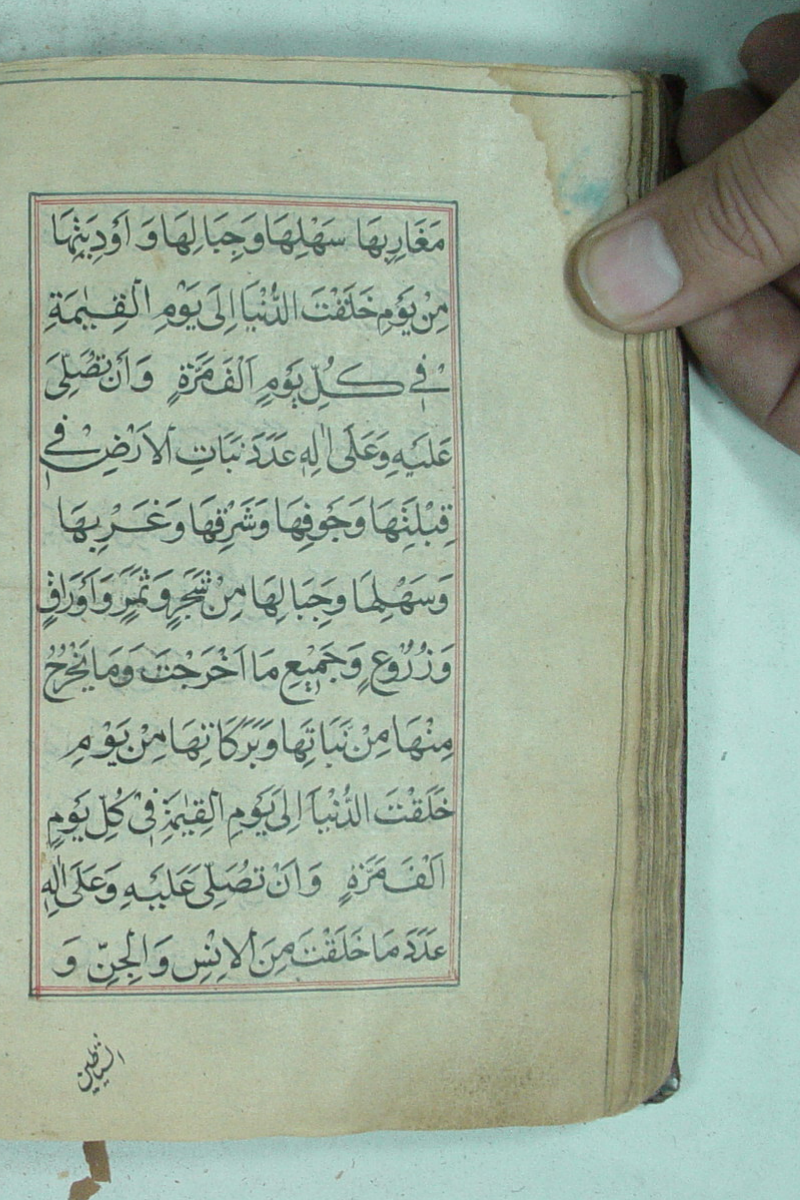 مَغَارِبِهَا سَهْلِهَا وَجِبَالِهَا وَ اَوْدِيَتِهَا
مِنْ يَوْمِ خَلَقْتَ الدُّنْيَا اِلَى يَوْمِ الْقِيٰمَةِ
فِي كُلِّ يَوْمٍ اَلْفَ مَرَّةٍ وَاَنْ تُصَلِّىَ
عَلَيْهِ وَعَلَى اٰلِهِ عَدَدَ نَبَاتِ الْاَرْضِ فِي
قِبْلَتِهَا وَجَوْفِهَا وَشَرْقِهَا وَغَرْبِهَا
وَسَهْلِهَا وَجِبَالِهَا مِنْ شَجَرٍ وَثَمَرٍ وَاَوْرَاقٍ
وَزُرُوْعٍ وَجَمِيْعِ مَا اَخْرَجْتَ وَمَا يَخْرُجُ
مِنْهَا مِنْ نَبَاتِهَا وَبَرَكَاتِهَا مِنْ يَوْمِ
خَلَقْتَ الدُّنْيَا اِلىَ يَوْمِ الْقِيٰمَةِ فِىْ كُلِّ يَوْمٍ
اَلْفَ مَرَّةٍ وَاَنْ تُصَلِّىَ عَلَيْهِ وَعَلَى اٰلِهِ
عَدَدَ مَا خَلَقْتَ مِنَ الْاِنْسِ وَالْجِنِّ وَ
الشياطين